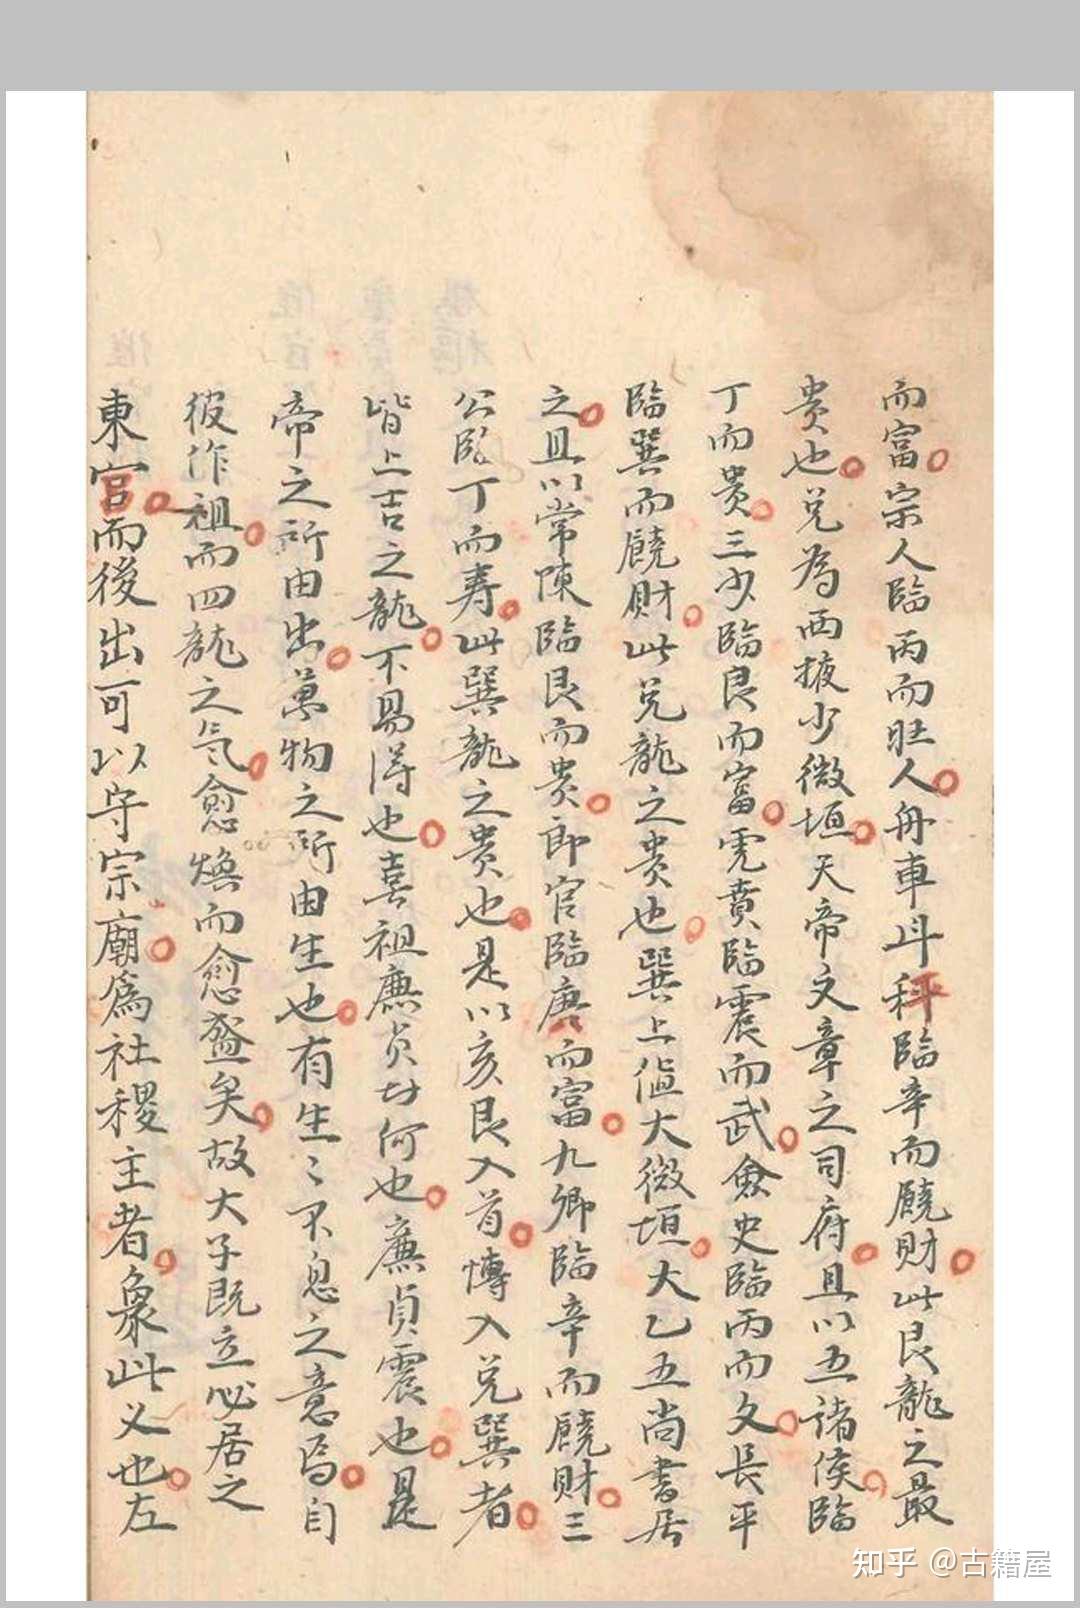 而富宗人臨丙而旺人舟車斗秤臨辛而饒財此艮龍之最
貴也兌為西掖少微垣天帝文章之司府且以五諸侯臨
丁而貴三少臨艮而富虎賁臨震而武僉史臨丙而文長平
臨巽而饒財此兌龍之貴也巽上值大微垣大乙五尚書居
之且以常陳臨艮而貴郎官臨庚而富九卿臨辛而饒財三
公臨丁而寿此巽龍之貴也是以亥艮入首博入兌巽者
皆上吉之龍不易得也喜祖廉貞者何也廉貞震也是
帝之所由出萬物之所由生也有生〻不息之意焉自
彼作祖而四龍之气愈煥而愈盛矣故大子既立必居之
東宮而後出可以守宗廟爲社稷主者象此义也左
知乎 @古籍屋